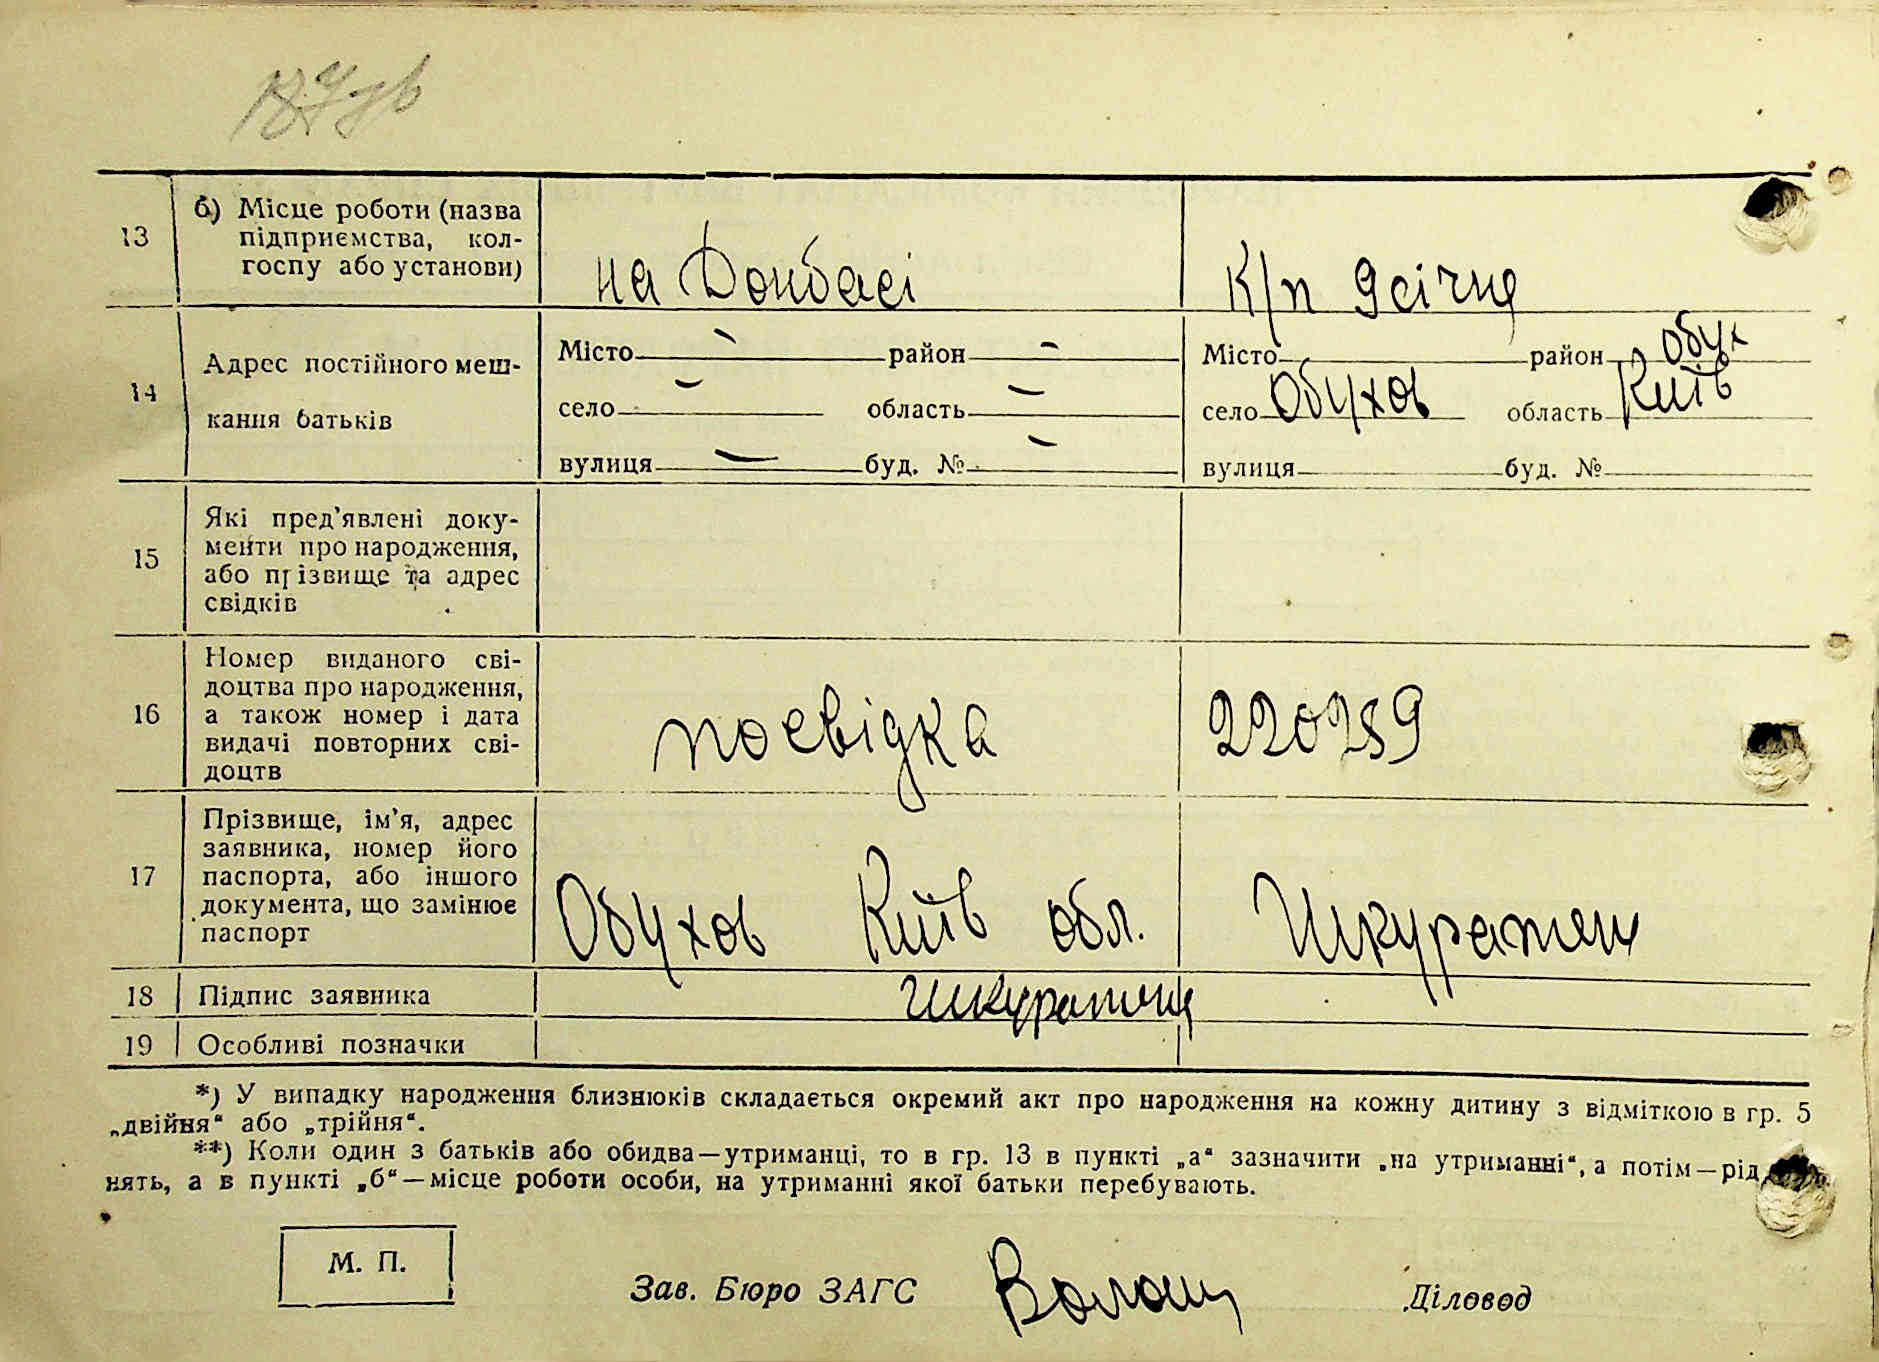 13
б) Місце роботи (назва
підприємства, кол-
госпу або установи)
на Донбасі
к/п 9 січня
14
Адрес постійного меш-
кання батьків
Місто — район —
село — область —
вулиця — буд. № —
Місто район Обух
село Обухов область Київ
вулиця буд. №
15
Які пред'явлені доку-
менти про народження,
або прізвище та адрес
свідків
16
Номер виданого сві-
доцтва про народження,
а також номер і дата
видачі повторних сві-
доцтв
посвідка
220259
17
Прізвище, ім'я, адрес
заявника, номер його
паспорта, або іншого
документа, що замінює
паспорт
Обухов Київ обл.
18 Підпис заявника
19 Особливі позначки
*) У випадку народження близнюків складається окремий акт про народження на кожну дитину з відміткою в гр. 5
„двійня“ або „трійня“.
**) Коли один з батьків або обидва—утриманці, то в гр. 13 в пункті „а“ зазначити „на утриманні“, а потім—рід
нять, а в пункті „б“—місце роботи особи, на утриманні якої батьки перебувають.
М. П.
Зав. Бюро ЗАГС
Діловод